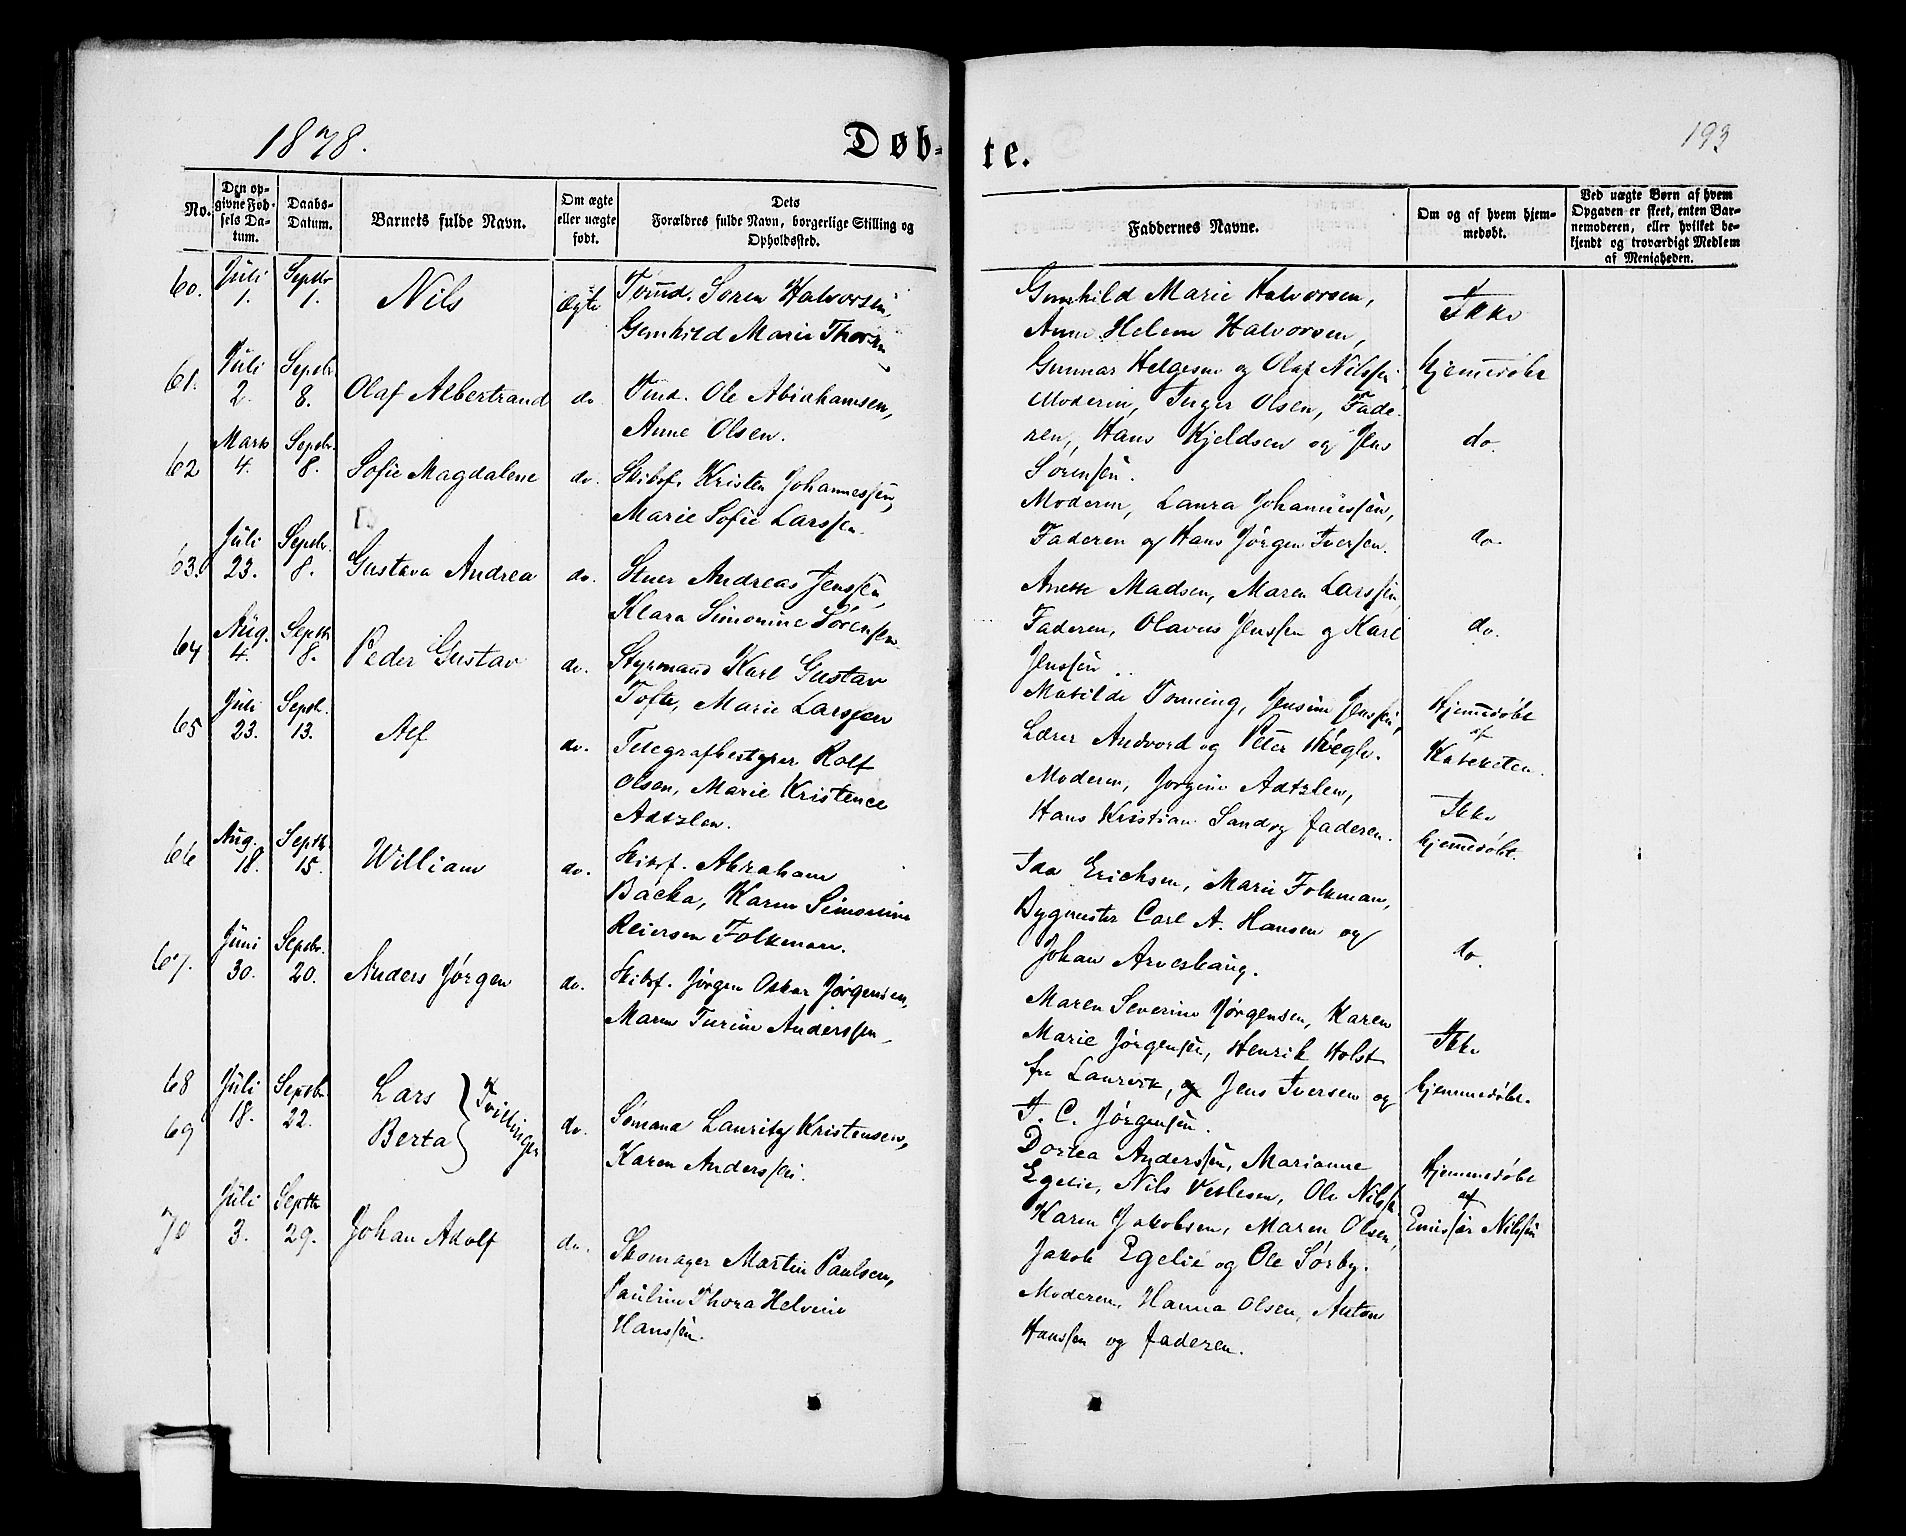 1878.
Døb-
te.
193
No.
Den op-
givne Fød-
sels Da-
tum.
Daabs-
Datum.
Barnets fulde Navn.
Om ægte
eller uægte
født.
Dets
Forældres fulde Navn, borgerlige Stilling og
Opholdssted.
Faddernes Navne.
Om og af hvem hjem-
medøbt.
Ved uægte Børn af hvem
Opgaven er skeet, enten Bar-
nemoderen, eller hvilket be-
kjendt og troværdigt Medlem
af Menigheden.
60.
Juli
1.
Septbr
1.
Nils
Ægte
Tømd. Søren Halvorsen,
Gunhild Marie Thorsen
Gunhild Marie Halvorsen,
Anne Helene Halvorsen,
Gunnar Helgesen og Olaf Nilssen
Ikke
hjemmedøbt
61.
Juli
2.
Septbr.
8.
Olaf Albertrand
do.
Tømd. Ole Abrahamsen,
Anne Olsen.
Moderen, Inger Olsen, Fade-
ren, Hans Kjeldsen og Jens
Sørensen.
do.
62
Marts
4.
Septbr.
8.
Sofie Magdalene
do.
Skibsf. Kristen Johannessen,
Marie Sofie Larssen.
Moderen, Laura Johannessen,
Faderen og Hans Jørgen Iversen.
do.
63.
Juli
23.
Septbr.
8.
Gustava Andrea
do.
Stuer Andreas Jenssen,
Klara Simonine Sørensen
Anette Madsen, Maren Larssen,
Faderen, Olavus Jenssen og Karl
Jenssen
do.
64
Aug.
4.
Septbr
8.
Peder Gustav
do.
Styrmand Karl Gustav
Tofte, Marie Larssen
Matilde Tonning, Jensine Jenssen,
Lærer Andvord og Peter
Hjemmedøbt
af
Kateketen.
65
Juli
23.
Septbr.
13.
Alf
do.
Telegrafbestyrer Rolf
Olsen, Marie Kristence
Adtzlen.
Moderen, Jørgine Adtzlen,
Hans Kristian Sand og Faderen.
Ikke
hjemmedøbt.
66
Aug.
18.
Septbr.
15.
William
do.
Skibsf. Abraham
Backa, Karen Simonine
Reiersen Folkman.
Ida Erichsen, Marie Folkman,
Bygmester Carl A. Hansen og
Johan Arveshaug.
do.
67.
Juni
30.
Septbr.
20.
Anders Jørgen
do.
Skibsf. Jørgen Oskar Jørgensen,
Maren Turine Anderssen,
Maren Severine Jørgensen, Karen
Marie Jørgensen, Henrik Holst
fra Laurvik, og Jens Iversen og
T. C. Jørgensen.
Ikke
hjemmedøbt.
68
69
Juli
18.
Septbr.
22.
Lars
Berta
Tvillinger
do.
Sømand Lauritz Kristensen,
Karen Anderssen.
Dortea Anderssen, Marianne
Egelie, Nils Veslesen, Ole Nilss
Karen Jakobsen, Maren Olsen,
Jakob Egelie og Ole Sørby.
Hjemmedøbt
af
Emissær Nilssen
70
Juli
3.
Septbr
29.
Johan Adolf
do.
Skomager Martin Paulsen,
Pauline Thora Helvine
Hanssen.
Moderen, Hanna Olsen, Anton
Hanssen og Faderen.